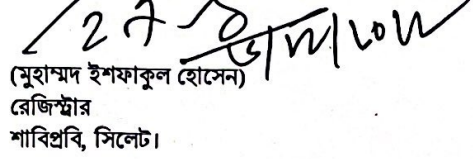 (মুহাম্মদ ইশফাকুল হোসেন)
রেজিস্ট্রার
শাবিপ্রবি, সিলেট।